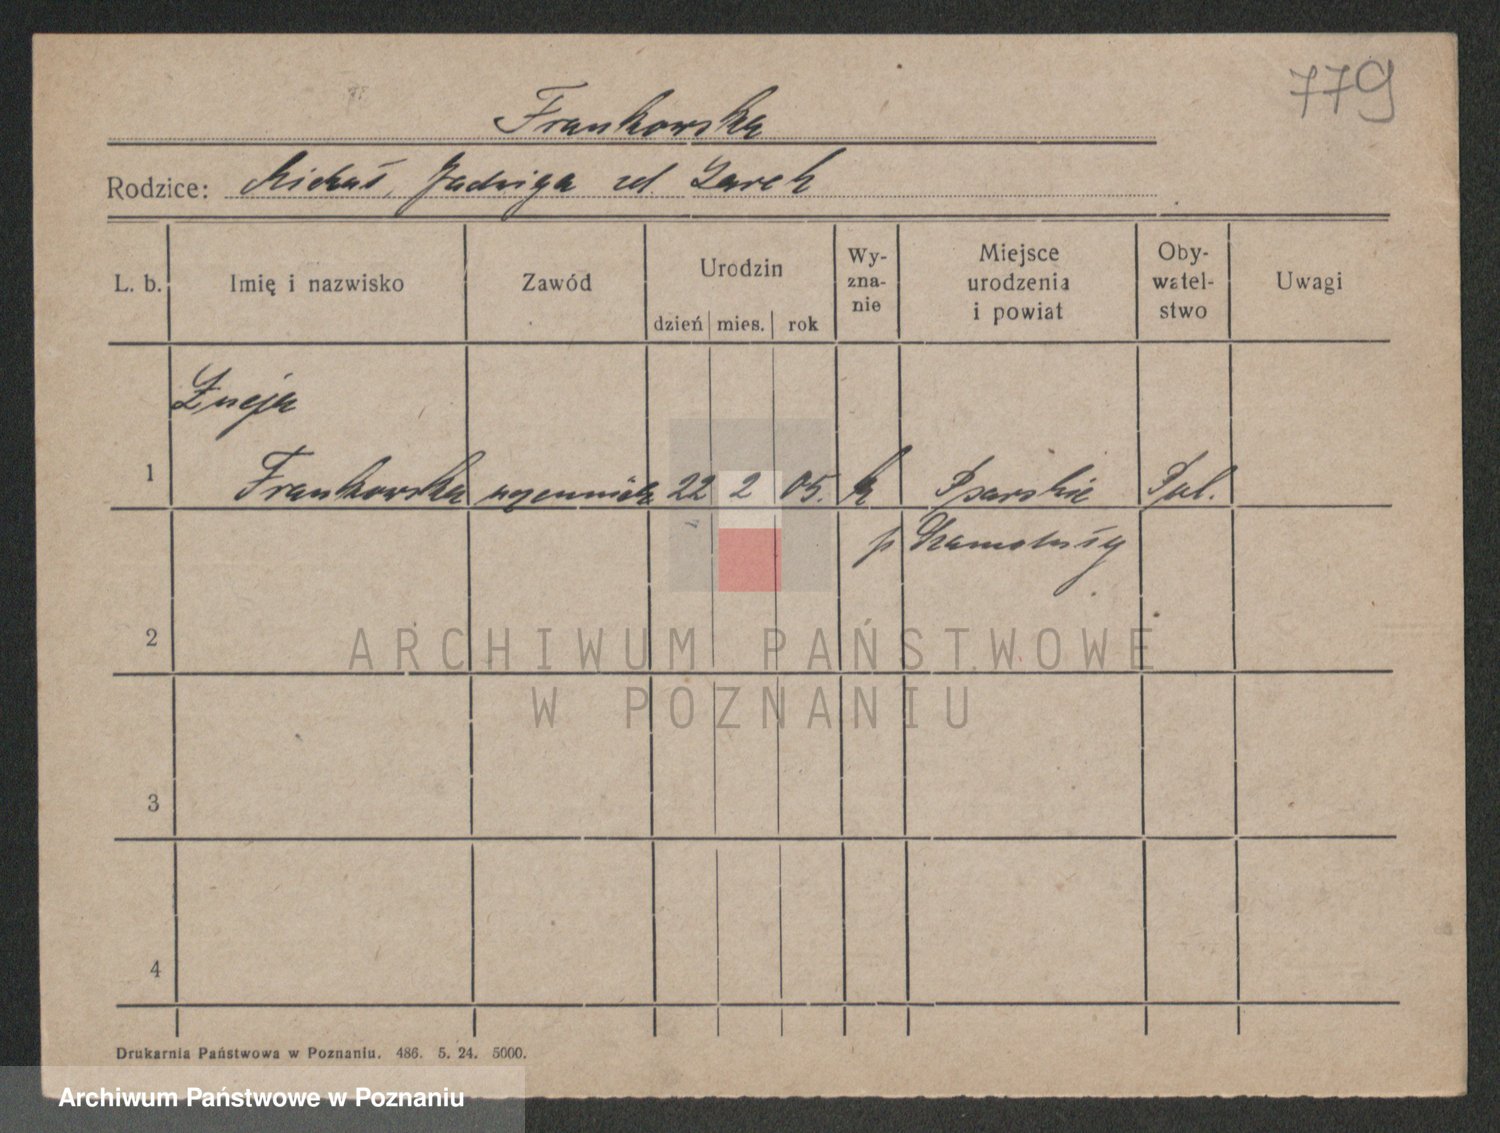 779
Frankowska
Rodzice: Michał, Jadwiga zd.
L. b.
Imię i nazwisko
Zawód
Urodzin
dzień
mies.
rok
Wy-
zna-
nie
Miejsce
urodzenia
i powiat
Oby-
watel-
stwo
Uwagi
Łucja
1 Frankowska 22 2 05. k Psarskie Pol.
p Szamotuły
2
ARCHIWUM PAŃSTWOWE
W POZNANIU
3
4
Drukarnia Państwowa w Poznaniu. 486. 5. 24. 5000.
Archiwum Państwowe w Poznaniu